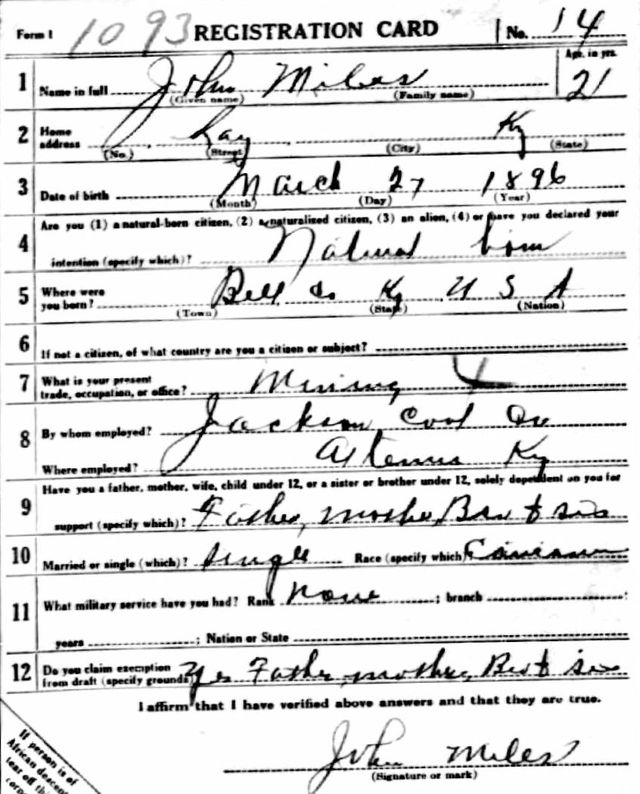 Form 1 1093 REGISTRATION CARD No. 14
Age, in yrs.
1 Name in full John Miles 21
(Given name) (Family name)
2 Home address Kay Ky
(No.) (Street) (City) (State)
3 Date of birth March 27 1896
(Month) (Day) (Year)
4 Are you (1) a natural-born citizen, (2) a naturalized citizen, (3) an alien, (4) or have you declared your
intention (specify which)? Natural born
5 Where were you born? Bell Co Ky U S A
(Town) (State) (Nation)
6 If not a citizen, of what country are you a citizen or subject?
7 What is your present trade, occupation, or office? Mining
8 By whom employed? Jackson Coal Co
Where employed? Artemus Ky
9 Have you a father, mother, wife, child under 12, or a sister or brother under 12, solely dependent on you for
support (specify which)? Father, mother, Bro & sis
10 Married or single (which)? single Race (specify which)? Caucasian
11 What military service have you had? Rank None ; branch ;
years ; Nation or State
12 Do you claim exemption from draft (specify grounds)? Yes Father, mother, Bro & sis
I affirm that I have verified above answers and that they are true.
John Miles
(Signature or mark)
If person is of
African descent
tear off this
corner